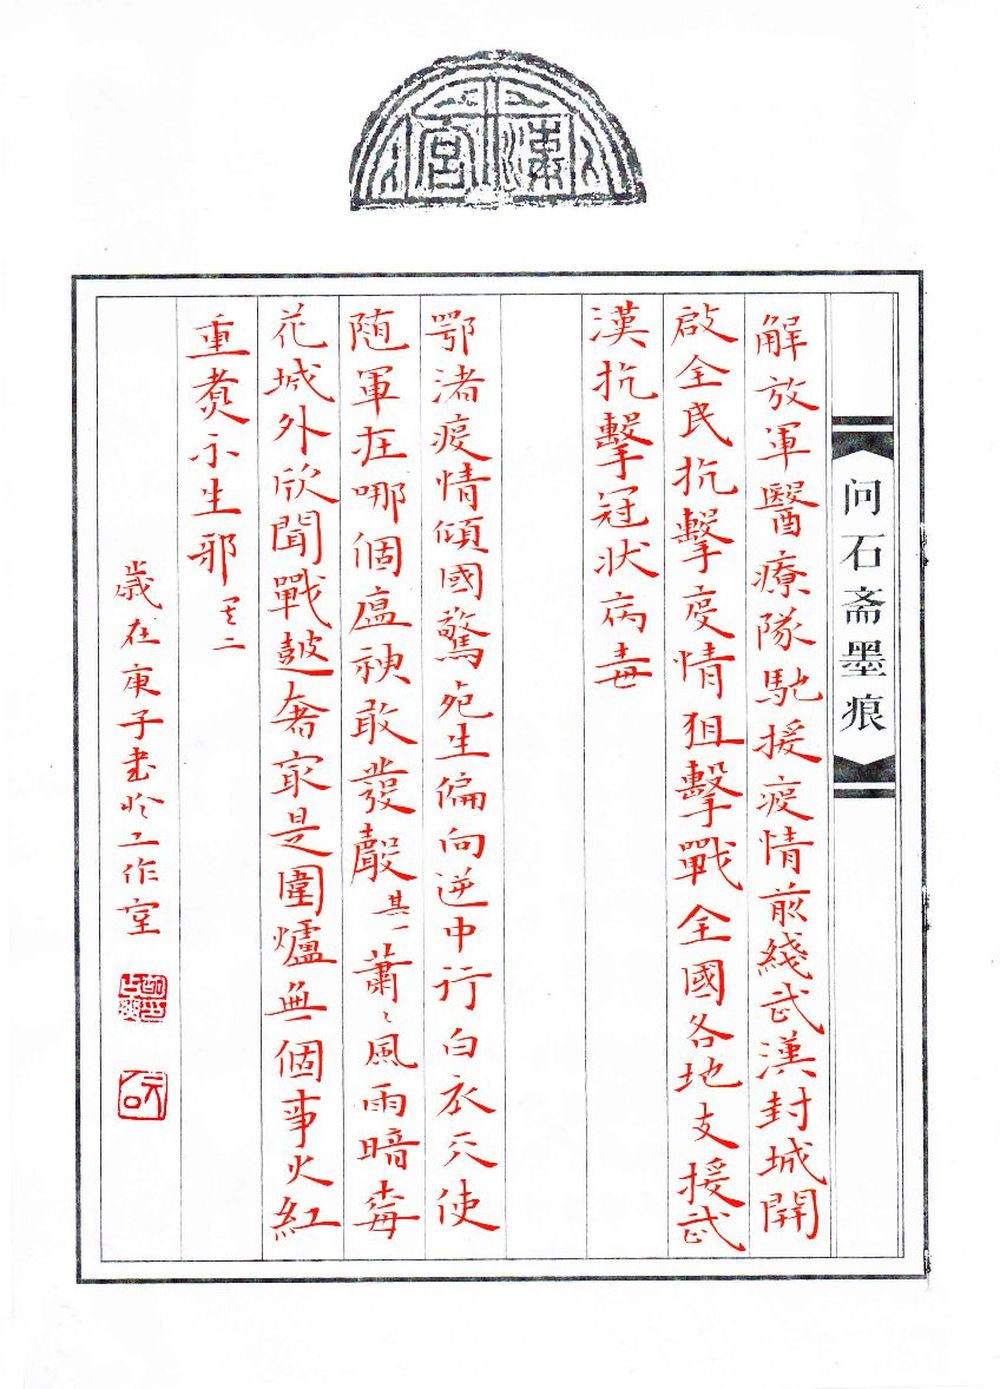 漢宮
问石斋墨痕
解放軍醫療隊馳援疫情前綫武漢封城開
啟全民抗擊疫情狙擊戰全國各地支援武
漢抗擊冠狀病毒
鄂渚疫情傾國驚宛生偏向逆中行白衣天使
随軍在哪個瘟神敢發聲其一蕭々風雨暗
花城外欣聞戰皷奮家是圍爐無個事火紅
重煑示生邪其二
歲在庚子書於工作室